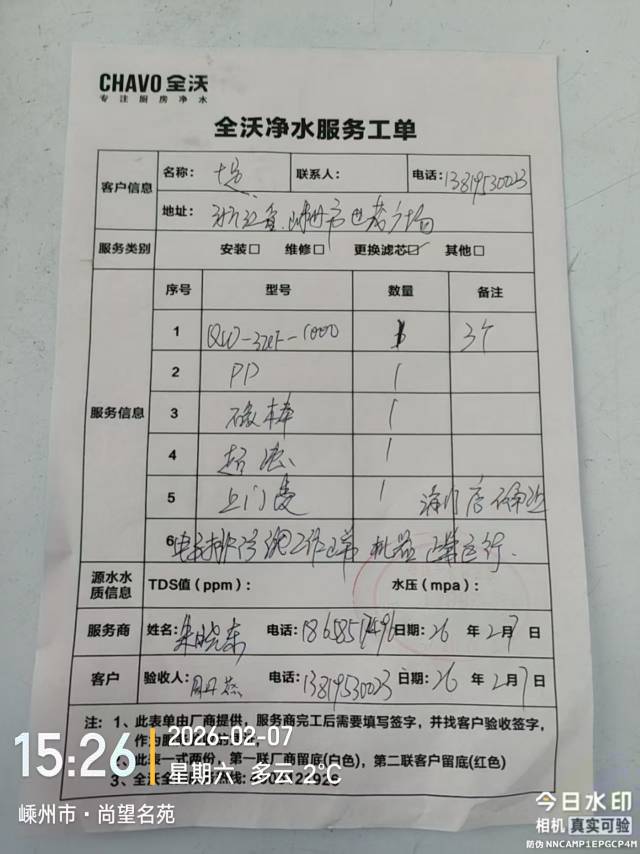 CHAVO 全沃
专注厨房净水
全沃净水服务工单
客户信息 名称： 联系人： 电话：13819530023
地址： 广场
服务类别 安装□ 维修□ 更换滤芯☑ 其他□
服务信息 序号 型号 数量 备注
1 3个
2 PP 1
3 碳棒 1
4 超滤 1
5 上门费 1
6 工作正常 机器正常运行.
源水水质信息 TDS值（ppm）： 水压（mpa）：
服务商 姓名：朱晓东 电话： 日期：26 年 2月7日
客户 验收人： 电话：13819530023 日期：26 年 2月7日
注：1、此表单由厂商提供，服务商完工后需要填写签字，并找客户验收签字，
作为
2、此表一式两份，第一联厂商留底(白色)，第二联客户留底(红色)
3、全沃全
15:26
2026-02-07
星期六 多云 2℃
嵊州市·尚望名苑
今日水印
相机 真实可验
防伪 NNCAMP1EPGCP4M